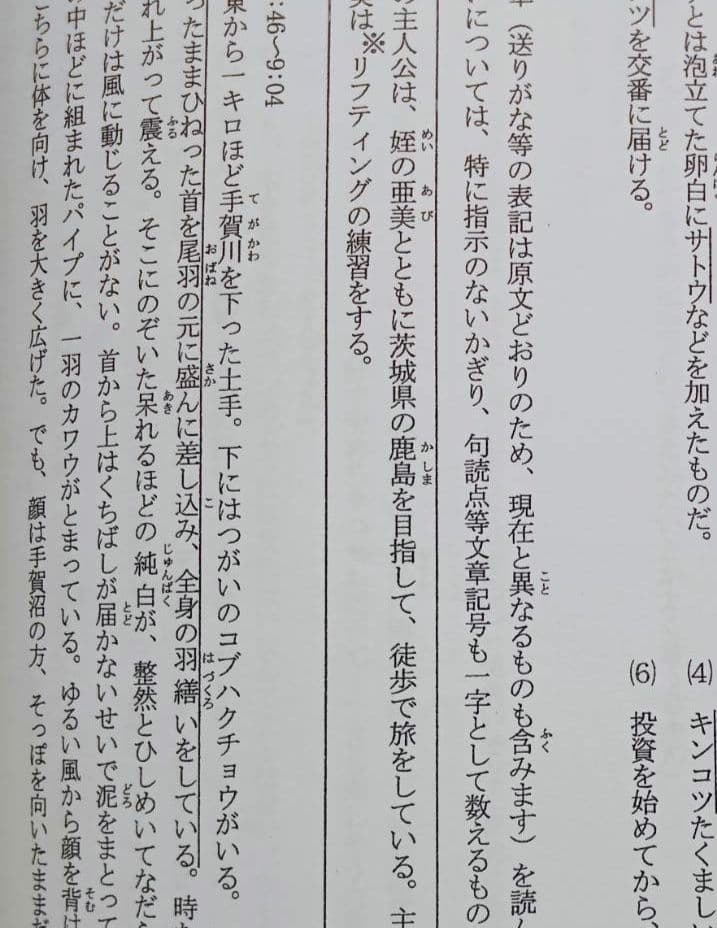 とは泡立てた卵白にサトウなどを加えたものだ。
(4) キンコツたくまし
ツを交番に届ける。
(6) 投資を始めてから、
(送りがな等の表記は原文どおりのため、現在と異なるものも含みます)を読
については、特に指示のないかぎり、句読点等文章記号も一字として数えるもの
の主人公は、姪の亜美とともに茨城県の鹿島を目指して、徒歩で旅をしている。主
は※リフティングの練習をする。
:46〜9:04
東から一キロほど手賀川を下った土手。下にはつがいのコブハクチョウがいる。
ったままひねった首を尾羽の元に盛んに差し込み、全身の羽繕いをしている。時
れ上がって震える。そこにのぞいた呆れるほどの純白が、整然とひしめいてなだら
だけは風に動じることがない。首から上はくちばしが届かないせいで泥をまとって
の中ほどに組まれたパイプに、一羽のカワウがとまっている。ゆるい風から顔を背け
ちらに体を向け、羽を大きく広げた。でも、顔は手賀沼の方、そっぽを向いたままだ